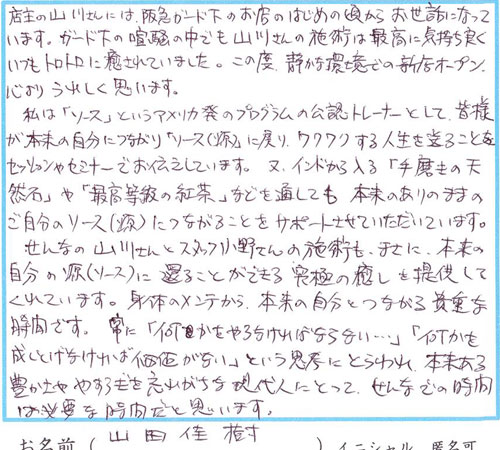 店主の山川さんには、阪急ガード下のお店のはじめの頃からお世話になって
います。ガード下の喧騒の中でも山川さんの施術は最高に気持ち良く
いつもトロトロに癒されていました。この度、静かな環境での新店オープン、
心よりうれしく思います。
私は「ソース」というアメリカ発のプログラムの公認トレーナーとして、皆様
が本来の自分につながり「ソース(源)」に戻り、ワクワクする人生を送ることを
セッションやセミナーでお伝えしています。又、インドから入る「手磨きの天
然石」や「最高等級の紅茶」などを通しても、本来のありのままの
ご自分のソース(源)につながることをサポートさせていただいています。
せんなの山川さんとスタッフ小野さんの施術も、まさに、本来の
自分の源(ソース)に還ることができる究極の癒しを提供して
くれています。身体のメンテから、本来の自分とつながる貴重な
時間です。常に「何かをやらなければならない…」「何かを
成しとげなければ価値がない」という思考にとらわれ、本来ある
豊かさややすらぎを忘れがちな現代人にとって、せんなでの時間
は必要な時間だと思います。
お名前(山田佳樹)イニシャル 匿名可